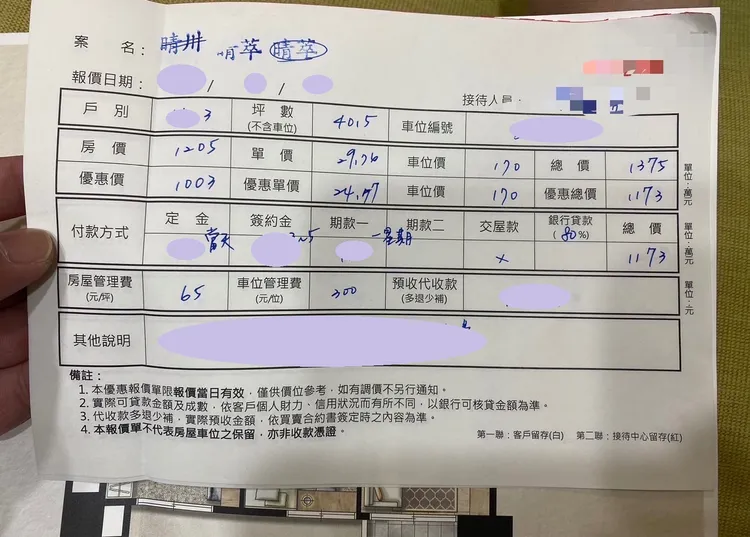 案 名： 晴卅 晴萃 晴萃
報價日期： / / 接待人員：
戶 別 3 坪 數 (不含車位) 40.5 車位編號
房 價 1205 單 價 29.76 車位價 170 總 價 1375
優惠價 1003 優惠單價 24.77 車位價 170 優惠總價 1173
單位：萬元
付款方式 定 金 簽約金 期款一 期款二 交屋款 銀行貸款 (80%) 總 價
當天 一星期 x 1173
單位：萬元
房屋管理費 (元/坪) 65 車位管理費 (元/位) 300 預收代收款 (多退少補)
單位：元
其他說明
備註：
1. 本優惠報價單限報價當日有效，僅供價位參考，如有調價不另行通知。
2. 實際可貸款金額及成數，依客戶個人財力、信用狀況而有所不同，以銀行可核貸金額為準。
3. 代收款多退少補，實際預收金額，依買賣合約書簽定時之內容為準。
4. 本報價單不代表房屋車位之保留，亦非收款憑證。
第一聯：客戶留存(白) 第二聯：接待中心留存(紅)